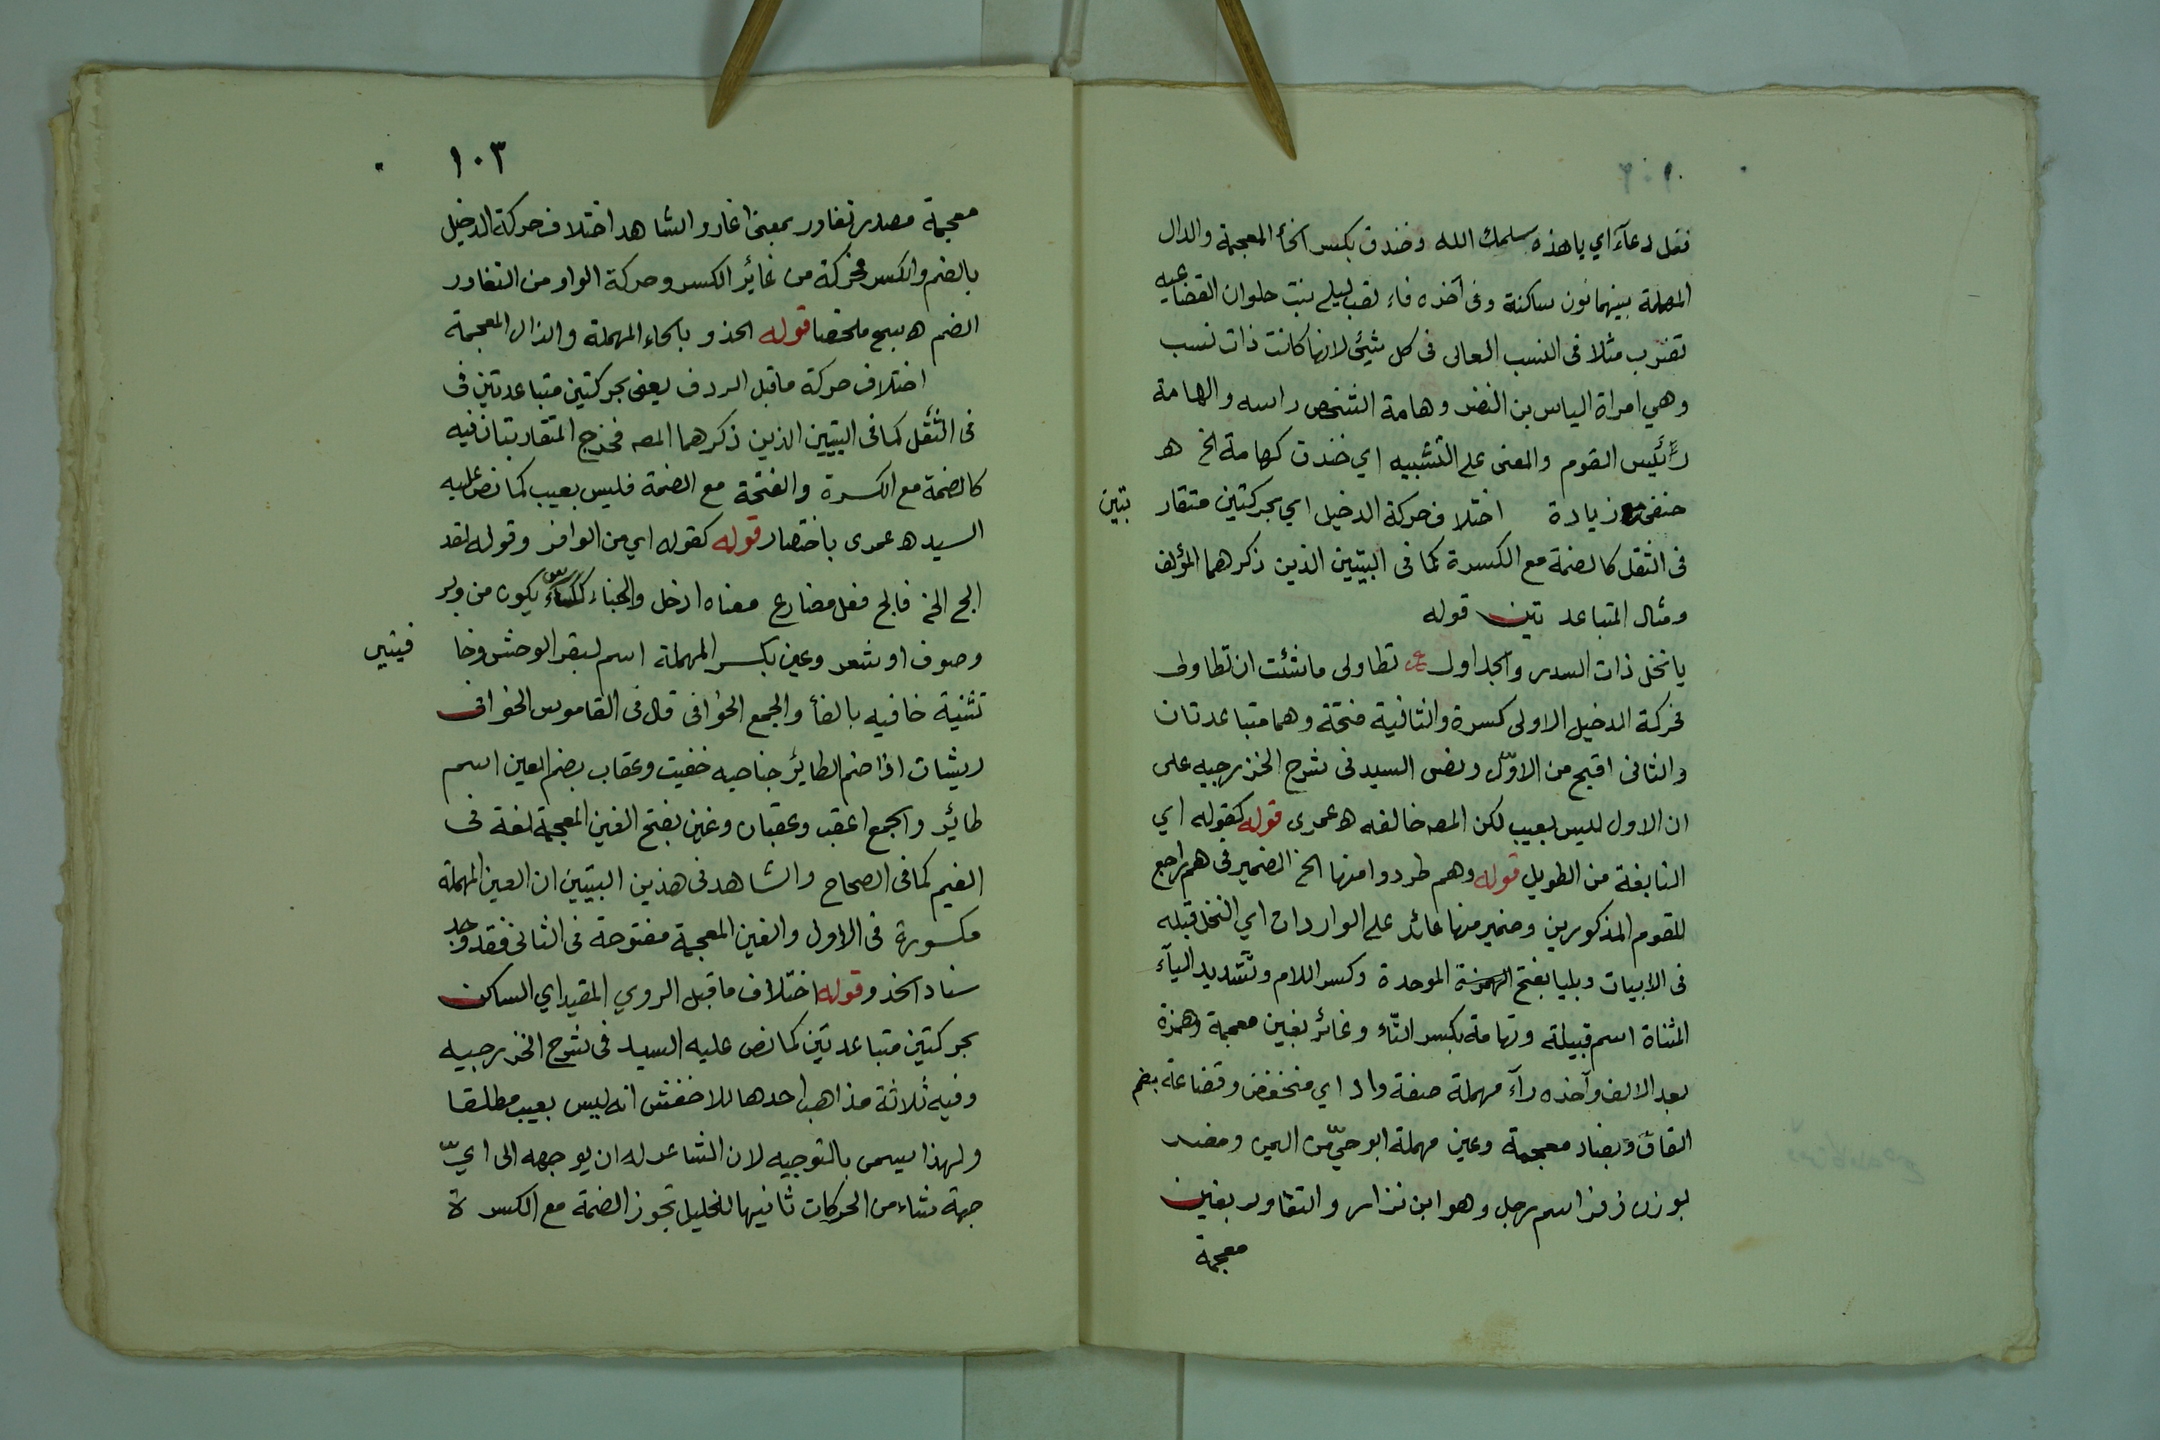 فعل دعاء اي يا هذه سلمك الله وخندق بكسر الخأ المعجمة والدال
المهملة بينهما نون ساكنة وفى آخره فاء لقب ليلے بنت حلوان القضاعيه
تضرب مثلا فى النسب العالى فى كل شيئى لانها كانت ذات نسب
وهي امراة الياس بن النضر وهامة الشخص راسه والهامة
رئيس القوم والمعنى على التشبيه اي خندق كهامة الخ ھ
حنفى مع زيادة اختلاف حركة الدخيل اي بحركتين متقار بتين
فى الثقل كالضمة مع الكسرة كما فى البيتين الذين ذكرهما المؤلف
ومثال المتباعد تين قوله
يا نخل ذات السدر والجداول ع تطاولى ما شئت ان تطاولى
فحركة الدخيل الاولى كسرة والثانية فتحة وهما متباعدتان
والثانى اقبح من الاوّل ونص السيد فى شرح الخزرجيه على
ان الاول ليس بعيب لكن المصه خالفه ھ عمرى قوله كقوله اي
النابغة من الطويل قوله وهم طردوا منها الخ الضمير فى هم راجع
للقوم المذكورين وضمير منها عائد على الواردان اي النخل قبله
فى الابيات وبليا بفتح الموحدة وكسر اللام وتشديد اليآء
المثناة اسم قبيلة وتهامة بكسر التّاء وغائر بغين معجمة وهمزة
بعد الالف وآخره رآء مهملة صفة واد اي منخفض وقضاعة بضم
القاف وبضاد معجمة وعين مهملة ابو حيّ من اليمن ومضر
بوزن زفر اسم رجل وهو ابن نزار والتغاور بغين
معجمة
١٠٣
معجمة مصدر تغاور بمعنى اغار والشاهد اختلاف حركة الدخيل
بالضم والكسر فحركة من غائر الكسر وحركة الواو من التغاور
الضم ھ سبح ملخصا قوله الحذو بالحاء المهملة والذال المعجمة
اختلاف حركة ماقبل الردف يعنى بحركتين متباعدتين فى
فى الثقل كما فى البيتين الذين ذكرهما المصه فخرج المتقاربتان فيه
كالضمة مع الكسرة والفتحة مع الضمة فليس بعيب كما نص عليه
السيد ھ عمرى باختصار قوله كقوله اي من الوافر وقوله لقد
الج الخ فالج فعل مضارع معناه ادخل والخباء ككساء يكون من وبر
وصوف او شعر وعين بكسر المهملة اسم لبقر الوحش وخا فيتين
تثنية خافيه بالفأ والجمع الخوافى قال فى القاموس الخوافى
ريشات اذا ضم الطائر جناحيه خفيت وعقاب بضم العين اسم
طائر والجمع اعقب وعقبان وغين بفتح الغين المعجمة لغة فى
الغيم كما فى الصحاح والشاهد فى هذين البيتين ان العين المهملة
مكسورة فى الاول والغين المعجمة مفتوحة فى الثانى فقد وجد
سناد الحذو قوله اختلاف ماقبل الروي المقيد اي الساكن
بحركتين متباعدتين كما نص عليه السيد فى شرح الخزرجييه
وفيه ثلاثة مذاهب احدها للاخفش انه ليس بعيب مطلقا
ولهذا يسمى بالتوجيه لان الشاعر له ان يوجهه الى ايّ
جهة شاء من الحركات ثانيها للخليل تجوز الضمة مع الكسرة